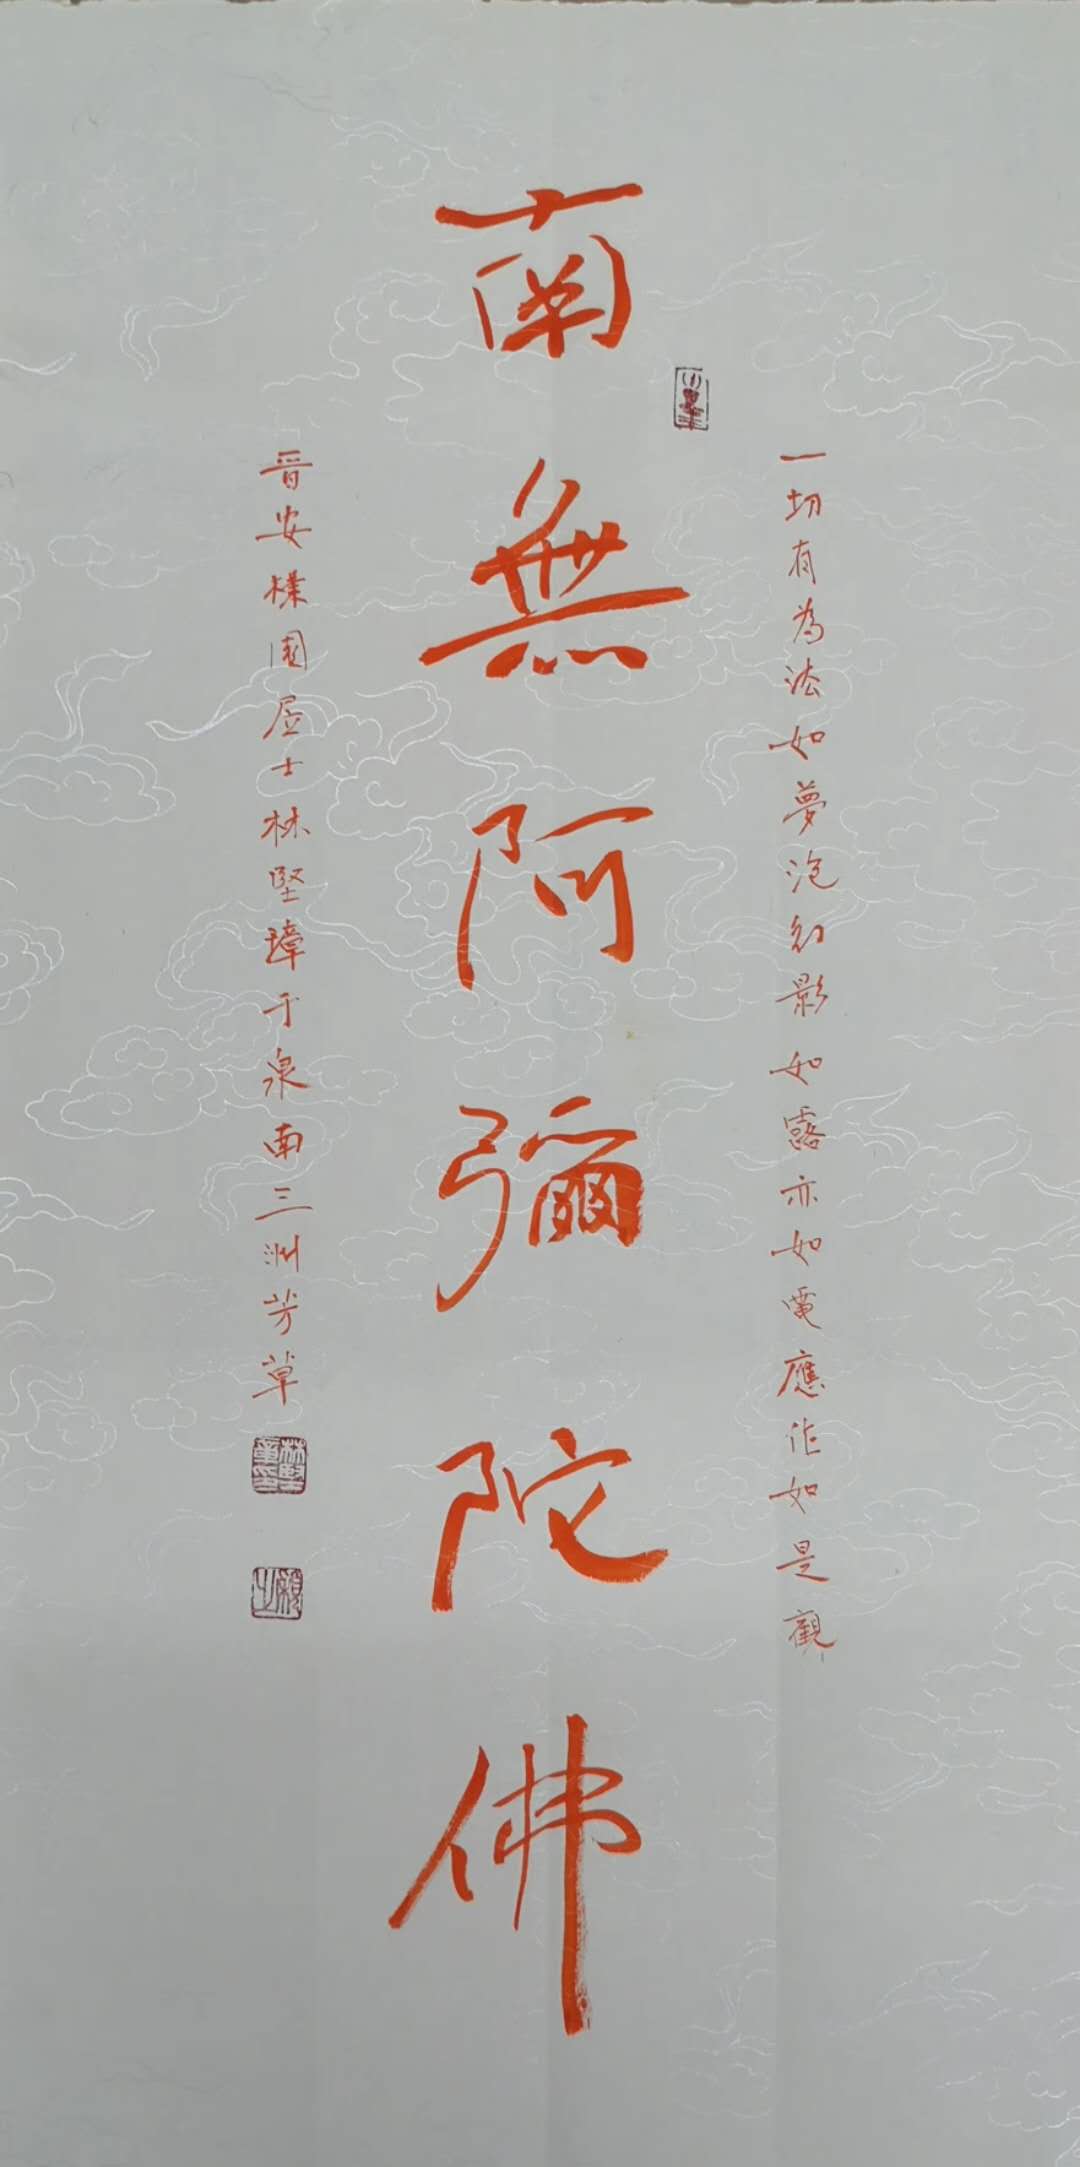 一切有為法如夢泡幻影如露亦如電應作如是觀
南無阿彌陀佛
晉安樸園居士林堅璋于泉南三洲芳草
林堅章印